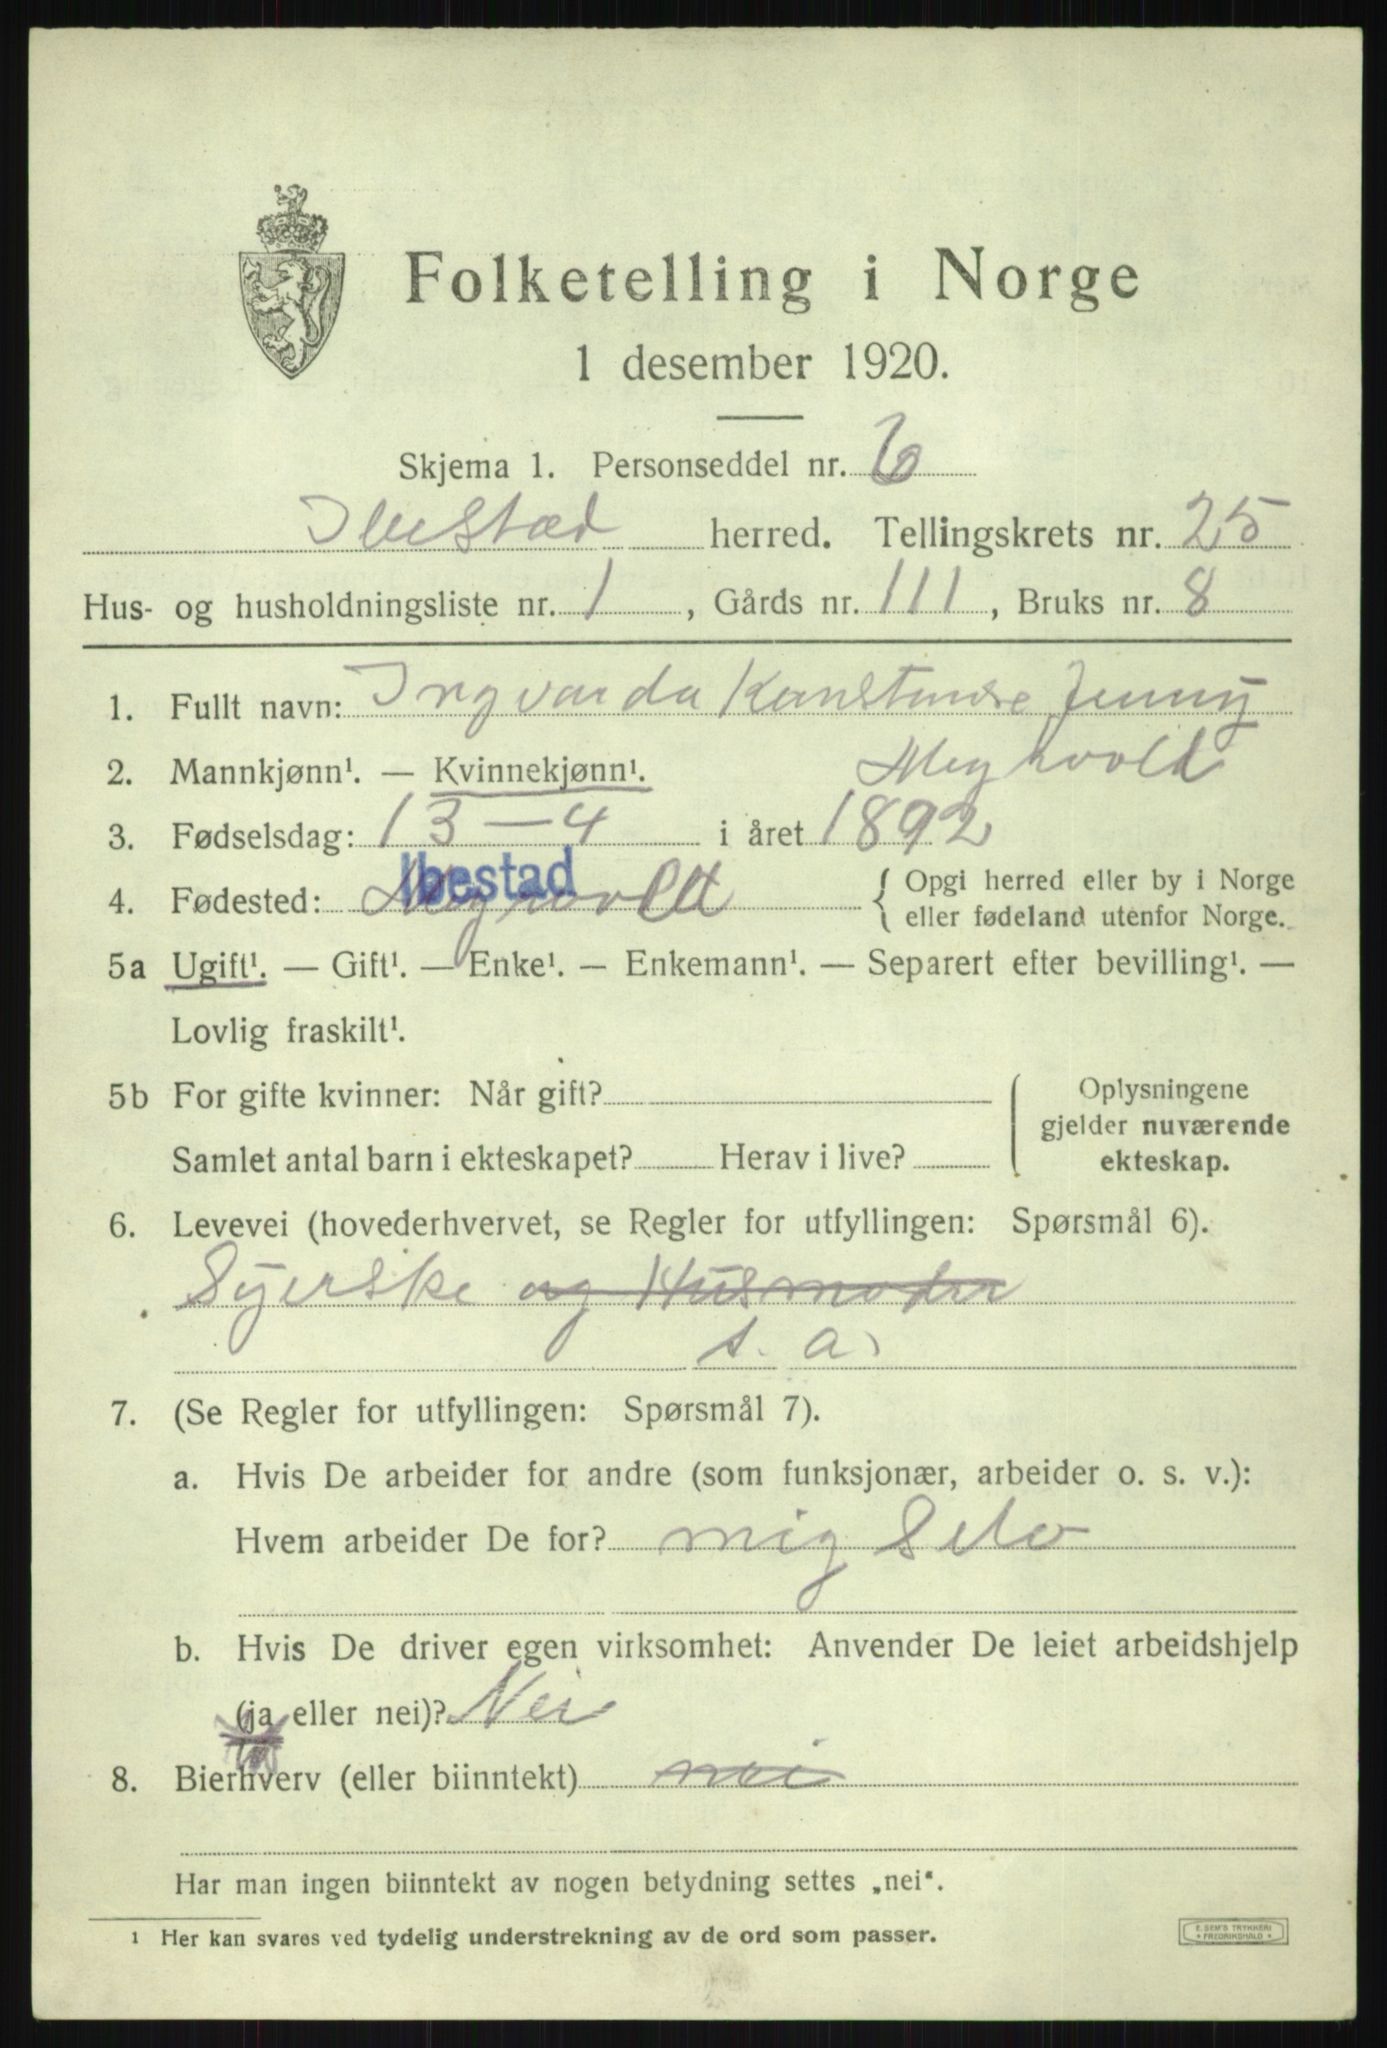 Folketelling i Norge
1 desember 1920.
Skjema 1. Personseddel nr. 6
Ibestad herred. Tellingskrets nr. 25
Hus- og husholdningsliste nr. 1, Gårds nr. 111, Bruks nr. 8
1. Fullt navn: Ingvarda Konstanse Jenny
Meghvold
2. Mannkjønn¹. — Kvinnekjønn¹.
3. Fødselsdag: 13 – 4 i året 1892
Ibestad
4. Fødested: { Opgi herred eller by i Norge
eller fødeland utenfor Norge.
5a Ugift¹. — Gift¹. — Enke¹. — Enkemann¹. — Separert efter bevilling¹. —
Lovlig fraskilt¹.
5b For gifte kvinner: Når gift? Oplysningene
gjelder nuværende
Samlet antal barn i ekteskapet? Herav i live? ekteskap.
6. Levevei (hovederhvervet, se Regler for utfyllingen: Spørsmål 6).
Syerske og Husmoder
s. a.
7. (Se Regler for utfyllingen: Spørsmål 7).
a. Hvis De arbeider for andre (som funksjonær, arbeider o. s. v.):
Hvem arbeider De for? mig Selv
b. Hvis De driver egen virksomhet: Anvender De leiet arbeidshjelp
(ja eller nei)? Nei
8. Bierhverv (eller biinntekt) nei
Har man ingen biinntekt av nogen betydning settes „nei".
¹ Her kan svares ved tydelig understrekning av de ord som passer.
E. SEM'S TRYKKERI
FREDRIKSHALD